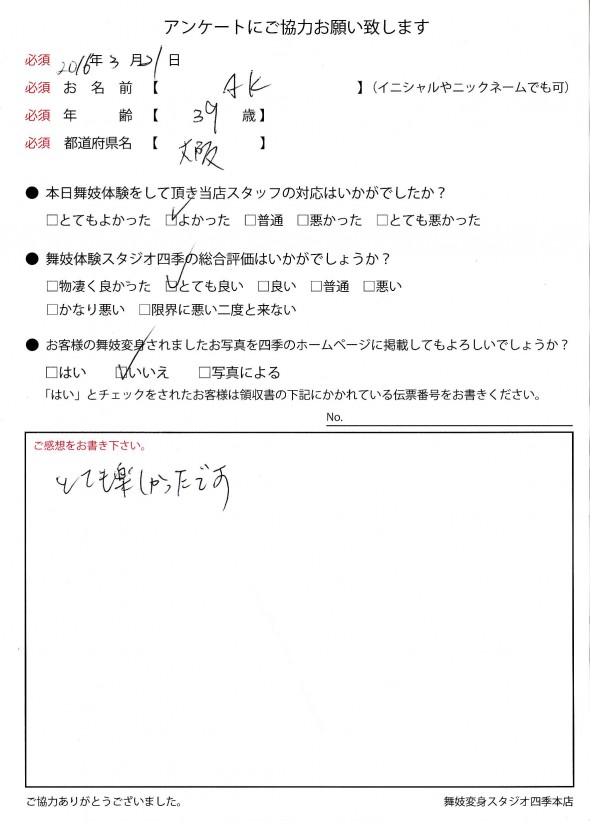 アンケートにご協力お願い致します
必須 2016年3月21日
必須 お名前【 AK 】(イニシャルやニックネームでも可)
必須 年齢【 39 歳】
必須 都道府県名【 大阪 】
● 本日舞妓体験をして頂き当店スタッフの対応はいかがでしたか?
□とてもよかった ☑よかった □普通 □悪かった □とても悪かった
● 舞妓体験スタジオ四季の総合評価はいかがでしょうか?
□物凄く良かった ☑とても良い □良い □普通 □悪い
□かなり悪い □限界に悪い二度と来ない
● お客様の舞妓変身されましたお写真を四季のホームページに掲載してもよろしいでしょうか?
□はい ☑いいえ □写真による
「はい」とチェックをされたお客様は領収書の下記にかかれている伝票番号をお書きください。
No.
ご感想をお書き下さい。
とても楽しかったです
ご協力ありがとうございました。 舞妓変身スタジオ四季本店